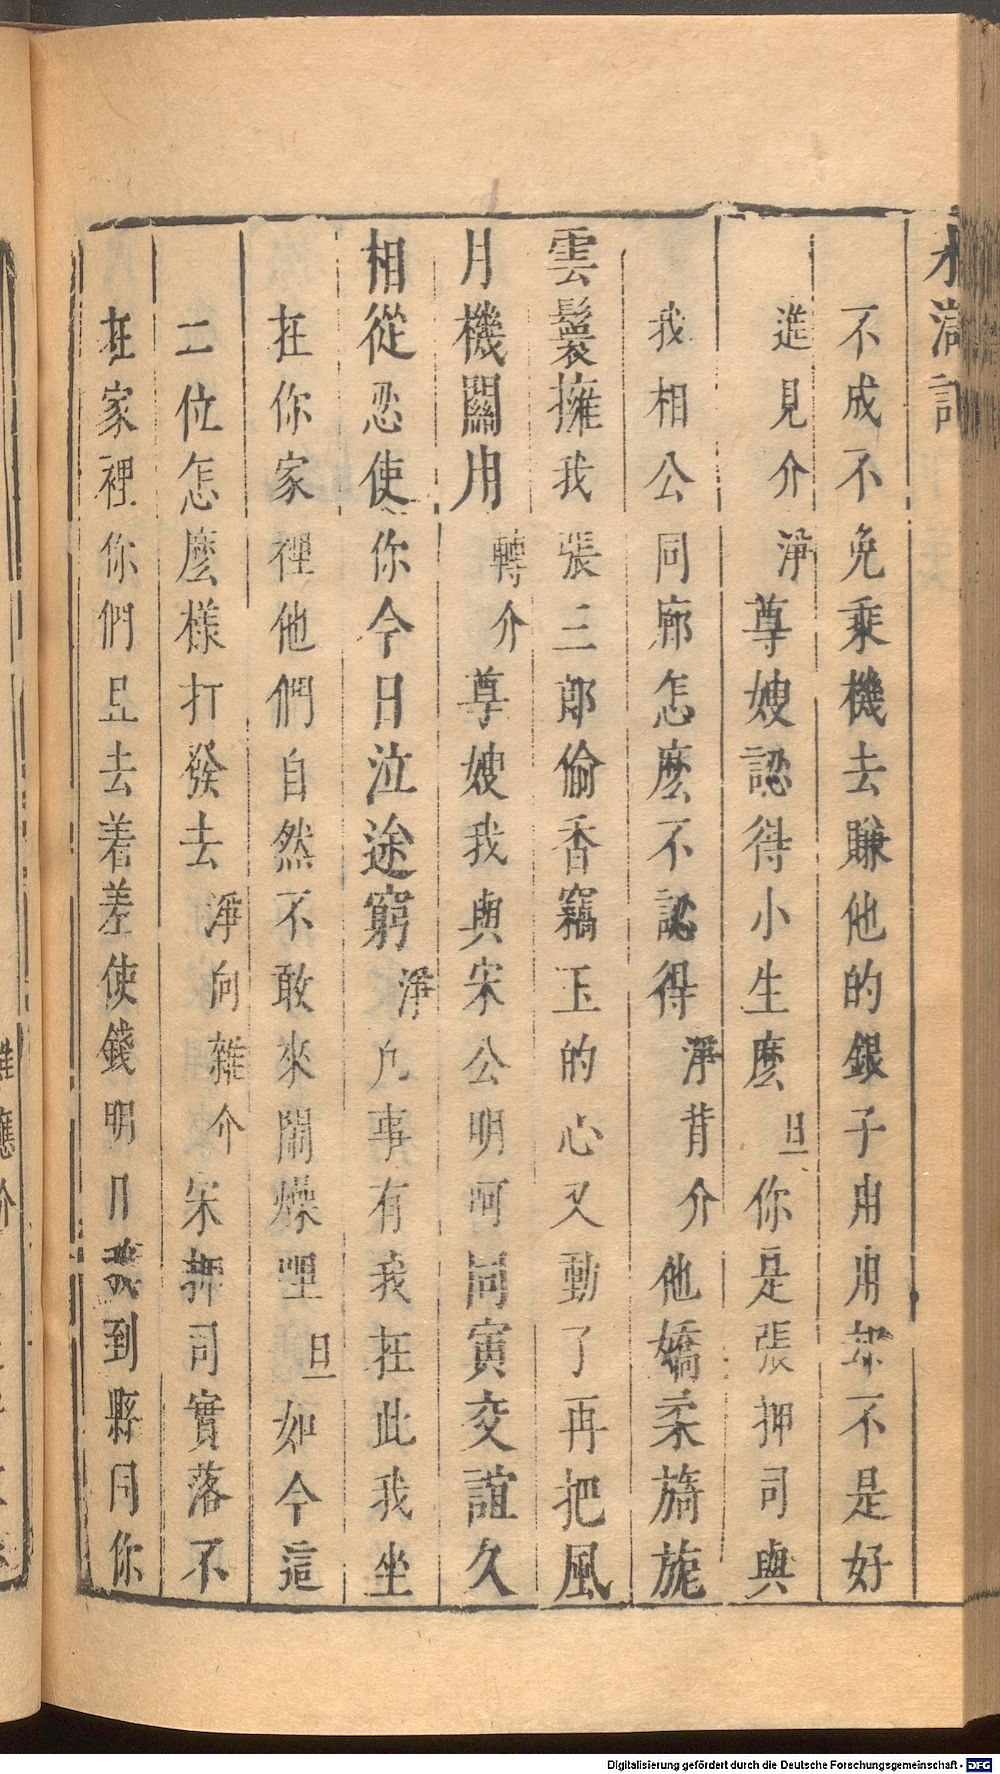 水滸記
不成不免乗機去賺他的銀子用用却不是好
進見介淨尊嫂認得小生麼旦你是張押司與
我相公同廊怎麽不認得淨背介他嬌柔旖旎
雲鬟擁我張三郎偷香竊玉的心又動了再把風
月機關用轉介尊嫂我與宋公明呵同寅交誼久
相從忍使你今日泣途窮淨凢事有我在此我坐
在你家裡他們自然不敢來鬧燥哩旦如今這
二位怎麽樣打發去淨向雜介宋押司實落不
在家裡你們且去着差使錢明日我到縣同你
雜應介
Digitalisierung gefördert durch die Deutsche Forschungsgemeinschaft - DFG